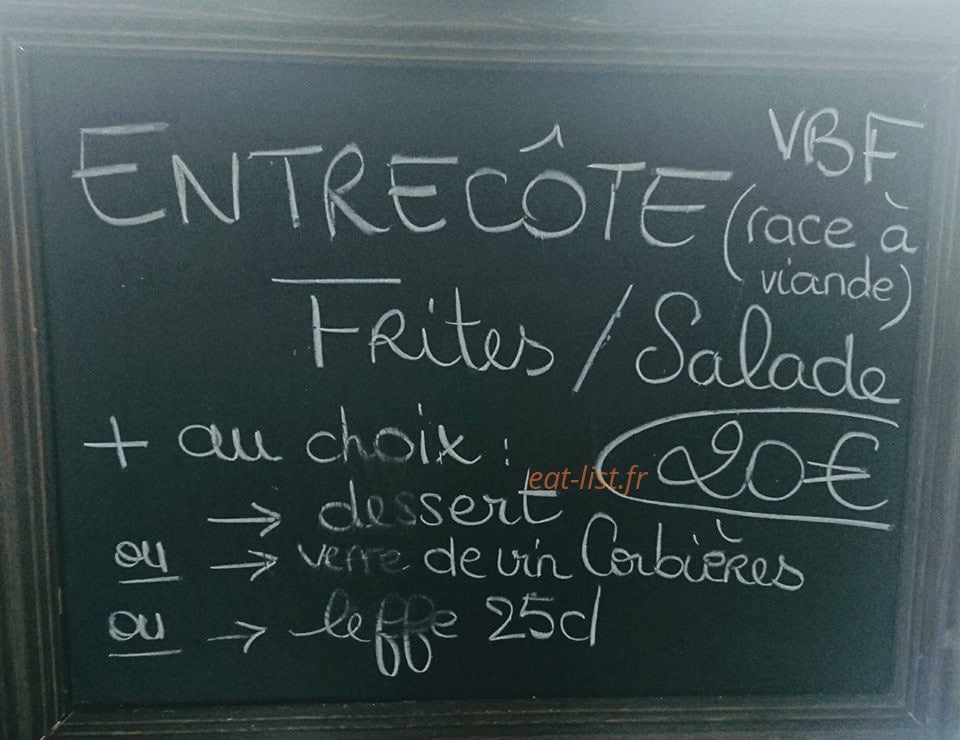 ENTRECÔTE VBF
(race à
viande)
FRites / Salade
+ au choix : 20€
eat-list.fr
→ dessert
ou → verre de vin Corbières
ou → leffe 25cl